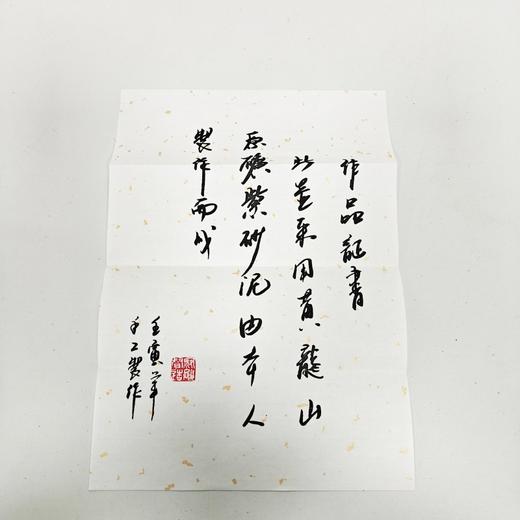 作品証書
此壺采用黄龍山
原礦紫砂泥由本人
製作而成
壬寅年
手工製作